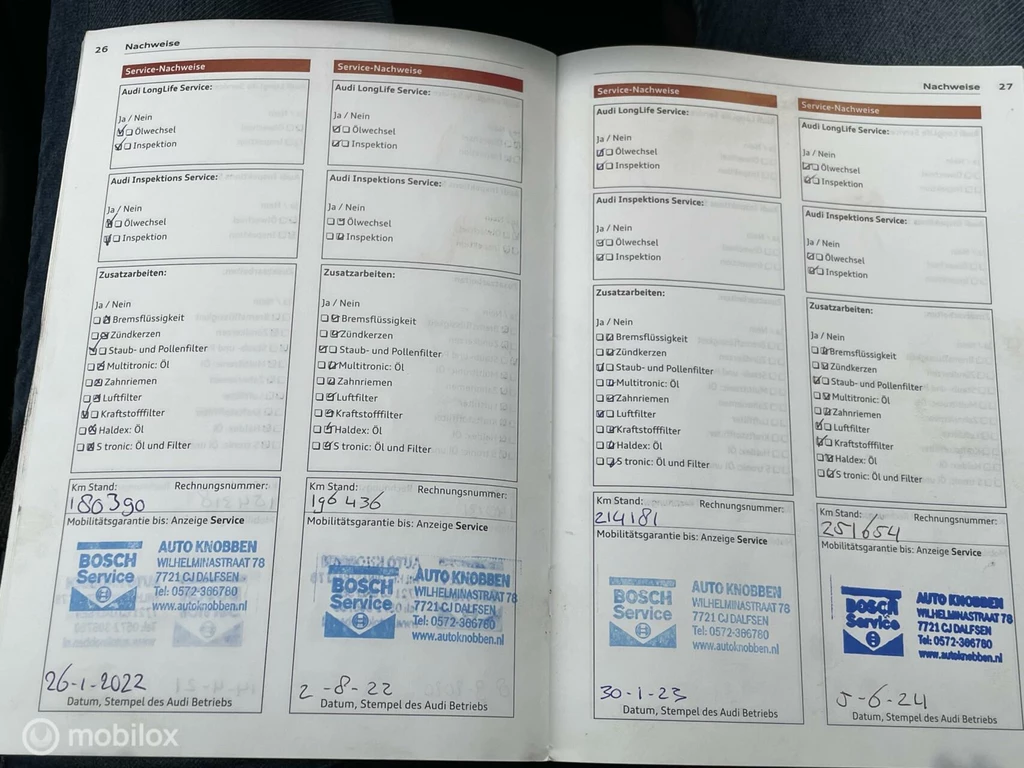 26 Nachweise
Service-Nachweise
Audi LongLife Service:
Ja / Nein
Ölwechsel
Inspektion
Audi Inspektions Service:
Ja / Nein
Ölwechsel
Inspektion
Zusatzarbeiten:
Ja / Nein
Bremsflüssigkeit
Zündkerzen
Staub- und Pollenfilter
Multitronic: Öl
Zahnriemen
Luftfilter
Kraftstofffilter
Haldex: Öl
S tronic: Öl und Filter
Km Stand: Rechnungsnummer:
180390
Mobilitätsgarantie bis: Anzeige Service
BOSCH
Service
AUTO KNOBBEN
WILHELMINASTRAAT 78
7721 CJ DALFSEN
Tel: 0572-386780
www.autoknobben.nl
26-1-2022
Datum, Stempel des Audi Betriebs
Service-Nachweise
Audi LongLife Service:
Ja / Nein
Ölwechsel
Inspektion
Audi Inspektions Service:
Ja / Nein
Ölwechsel
Inspektion
Zusatzarbeiten:
Ja / Nein
Bremsflüssigkeit
Zündkerzen
Staub- und Pollenfilter
Multitronic: Öl
Zahnriemen
Luftfilter
Kraftstofffilter
Haldex: Öl
S tronic: Öl und Filter
Km Stand: Rechnungsnummer:
196436
Mobilitätsgarantie bis: Anzeige Service
BOSCH
Service
AUTO KNOBBEN
WILHELMINASTRAAT 78
7721 CJ DALFSEN
Tel: 0572-386780
www.autoknobben.nl
2-8-22
Datum, Stempel des Audi Betriebs
Nachweise 27
Service-Nachweise
Audi LongLife Service:
Ja / Nein
Ölwechsel
Inspektion
Audi Inspektions Service:
Ja / Nein
Ölwechsel
Inspektion
Zusatzarbeiten:
Ja / Nein
Bremsflüssigkeit
Zündkerzen
Staub- und Pollenfilter
Multitronic: Öl
Zahnriemen
Luftfilter
Kraftstofffilter
Haldex: Öl
S tronic: Öl und Filter
Km Stand: Rechnungsnummer:
214181
Mobilitätsgarantie bis: Anzeige Service
BOSCH
Service
AUTO KNOBBEN
WILHELMINASTRAAT 78
7721 CJ DALFSEN
Tel: 0572-386780
www.autoknobben.nl
30-1-23
Datum, Stempel des Audi Betriebs
Service-Nachweise
Audi LongLife Service:
Ja / Nein
Ölwechsel
Inspektion
Audi Inspektions Service:
Ja / Nein
Ölwechsel
Inspektion
Zusatzarbeiten:
Ja / Nein
Bremsflüssigkeit
Zündkerzen
Staub- und Pollenfilter
Multitronic: Öl
Zahnriemen
Luftfilter
Kraftstofffilter
Haldex: Öl
S tronic: Öl und Filter
Km Stand: Rechnungsnummer:
251654
Mobilitätsgarantie bis: Anzeige Service
BOSCH
Service
AUTO KNOBBEN
WILHELMINASTRAAT 78
7721 CJ DALFSEN
Tel: 0572-386780
www.autoknobben.nl
5-6-24
Datum, Stempel des Audi Betriebs
mobilox